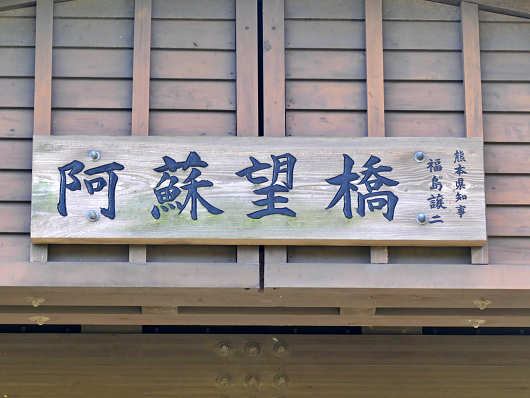 阿蘇望橋
熊本県知事
福島譲二